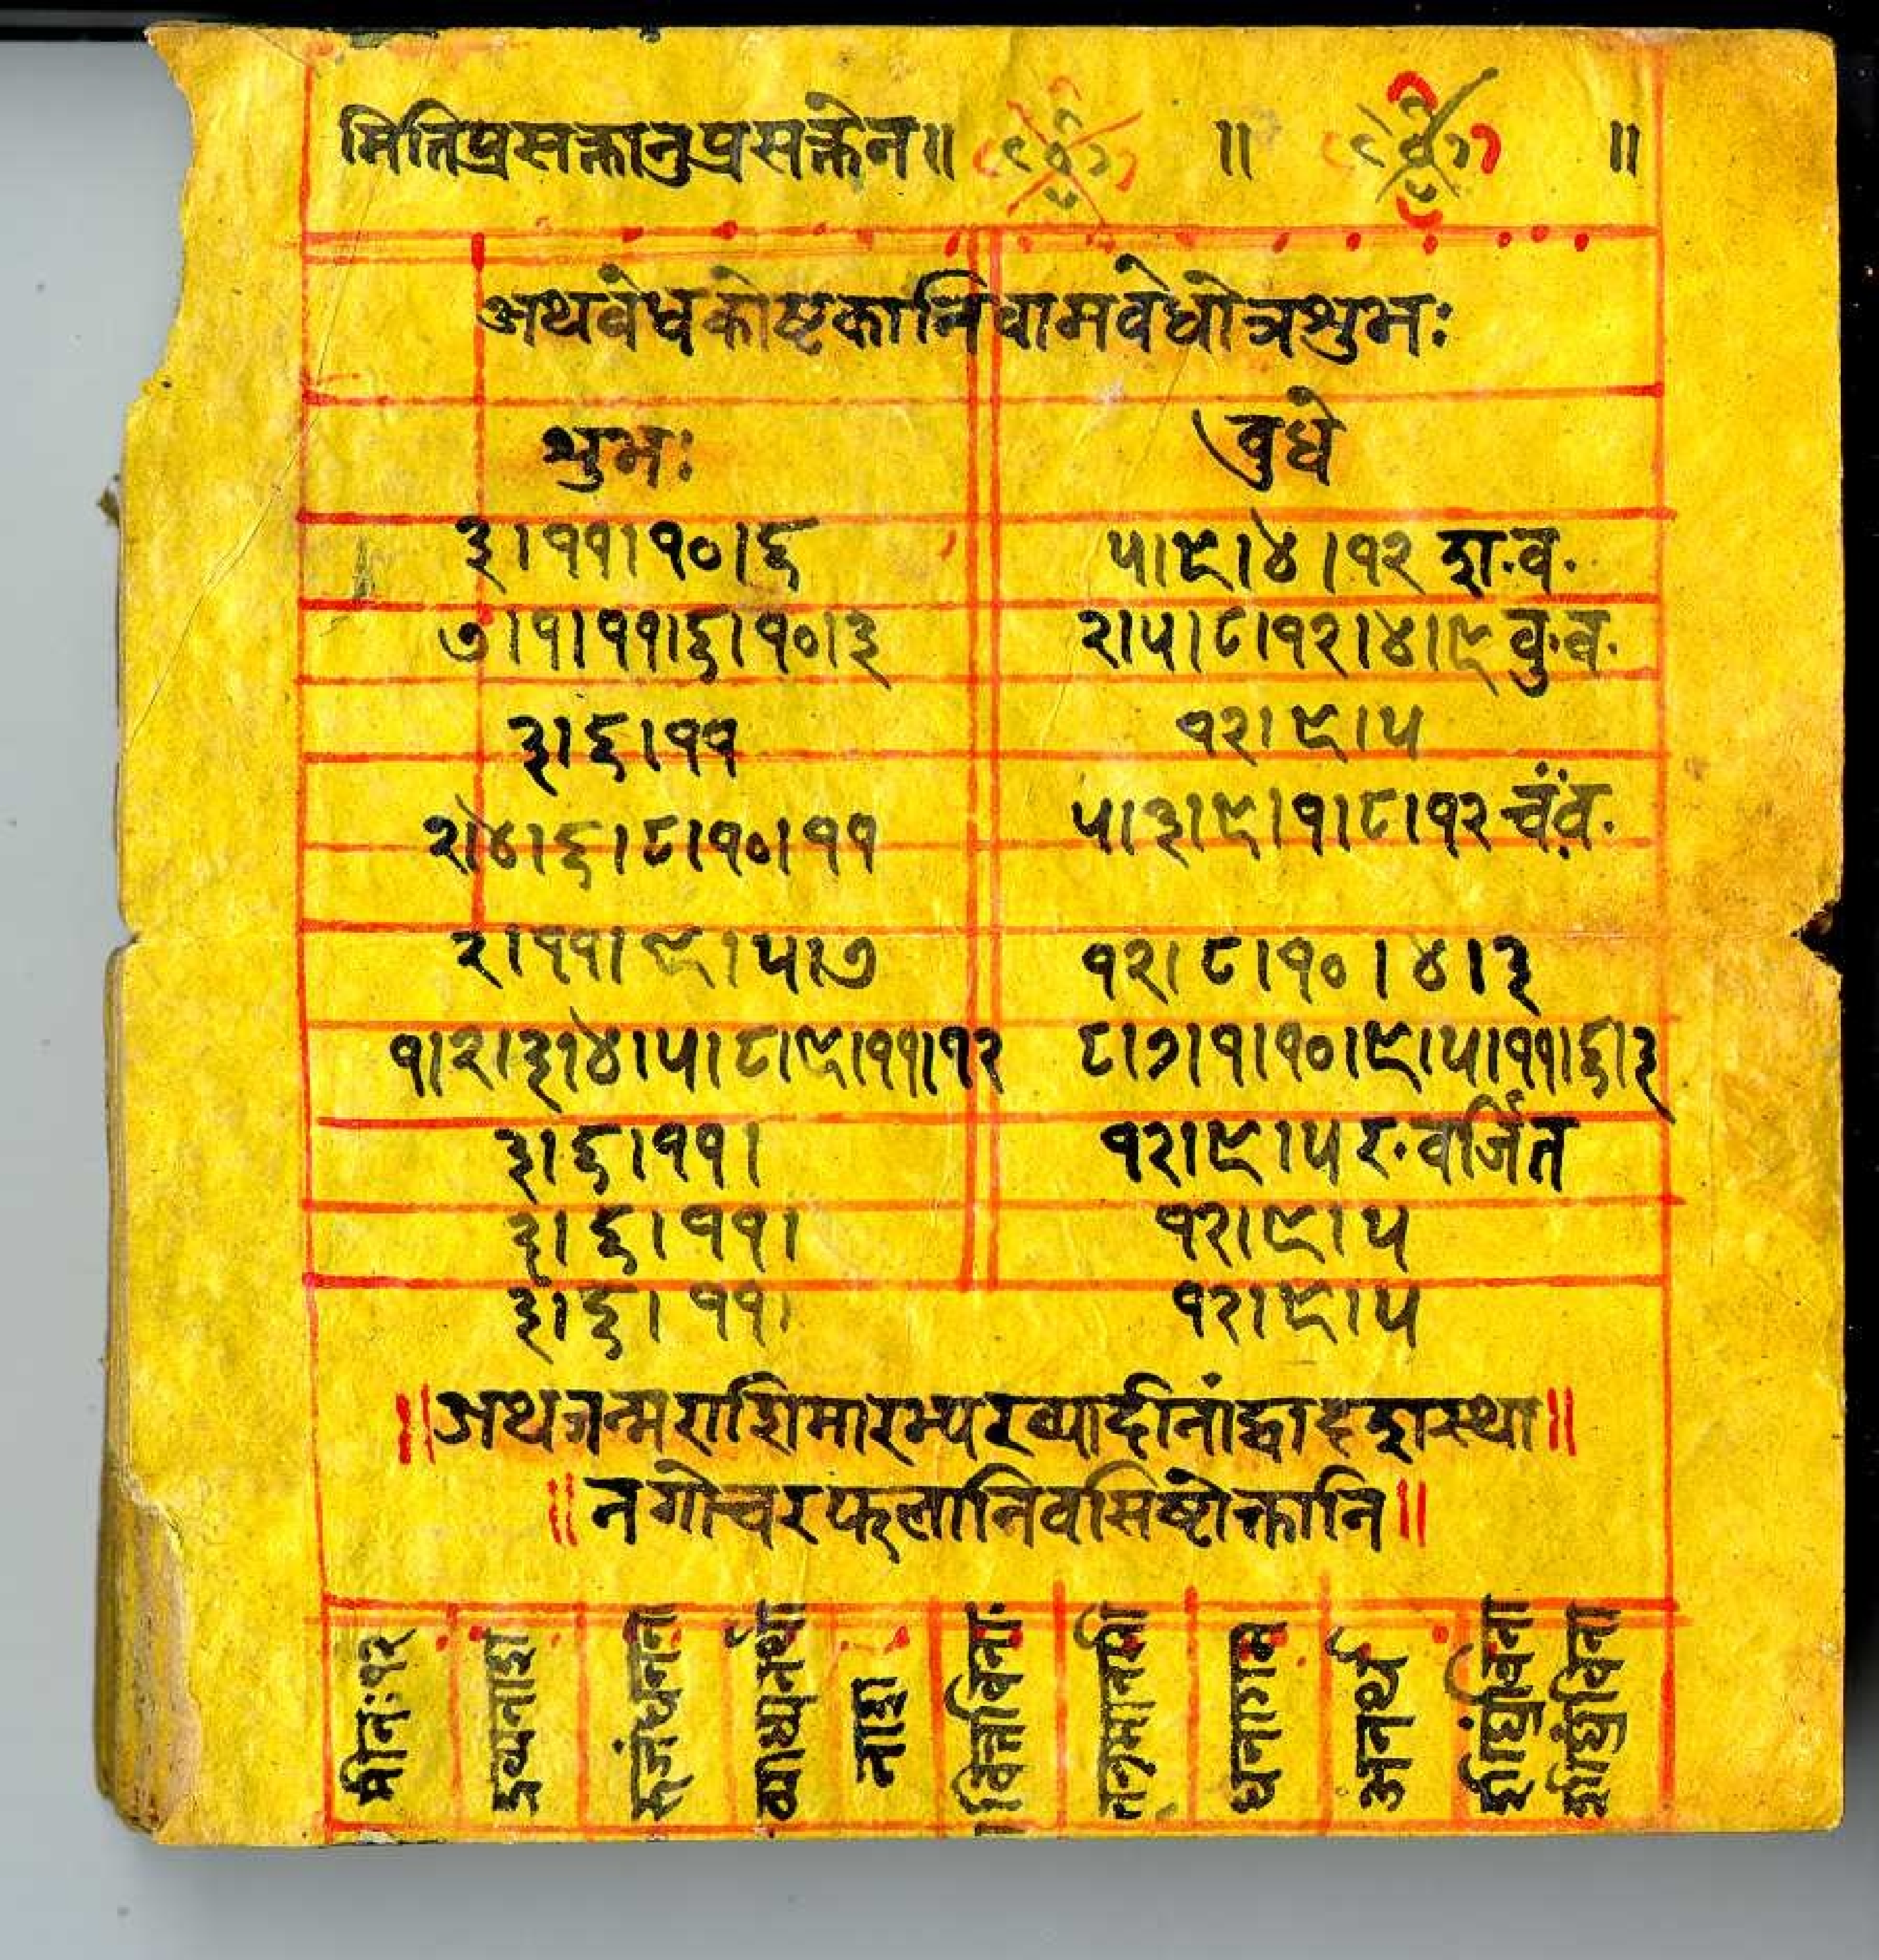 मितिप्रसक्तानुप्रसक्तेन॥ ॥ ॥
अथवेधकोष्टकानिवामवेधोत्रशुभः
शुभः वुधे
३।११।१०।६ ५।९।४।१२ श·व·
७।१।११।६।१०।३ २।५।८।१२।४।९ वु·व·
३।६।११ १२।९।५
२।४।६।८।१०।११ ५।३।९।१।८।१२ चं·व·
२।११।९।५।७ १२।८।१०।४।३
१।२।३।४।५।८।९।११।१२ ८।७।१।१०।९।५।११।६।३
३।६।११। १२।९।५ र·वर्जित
३।६।११। १२।९।५
३।६।११। १२।९।५
॥अथजन्मराशिमारभ्यरव्यादीनांद्वादशस्था॥
॥नगोचरफलानिवसिष्टोक्तानि॥
मीनः१२
द्रव्यनाश
नाश
धनागम
अनर्थ